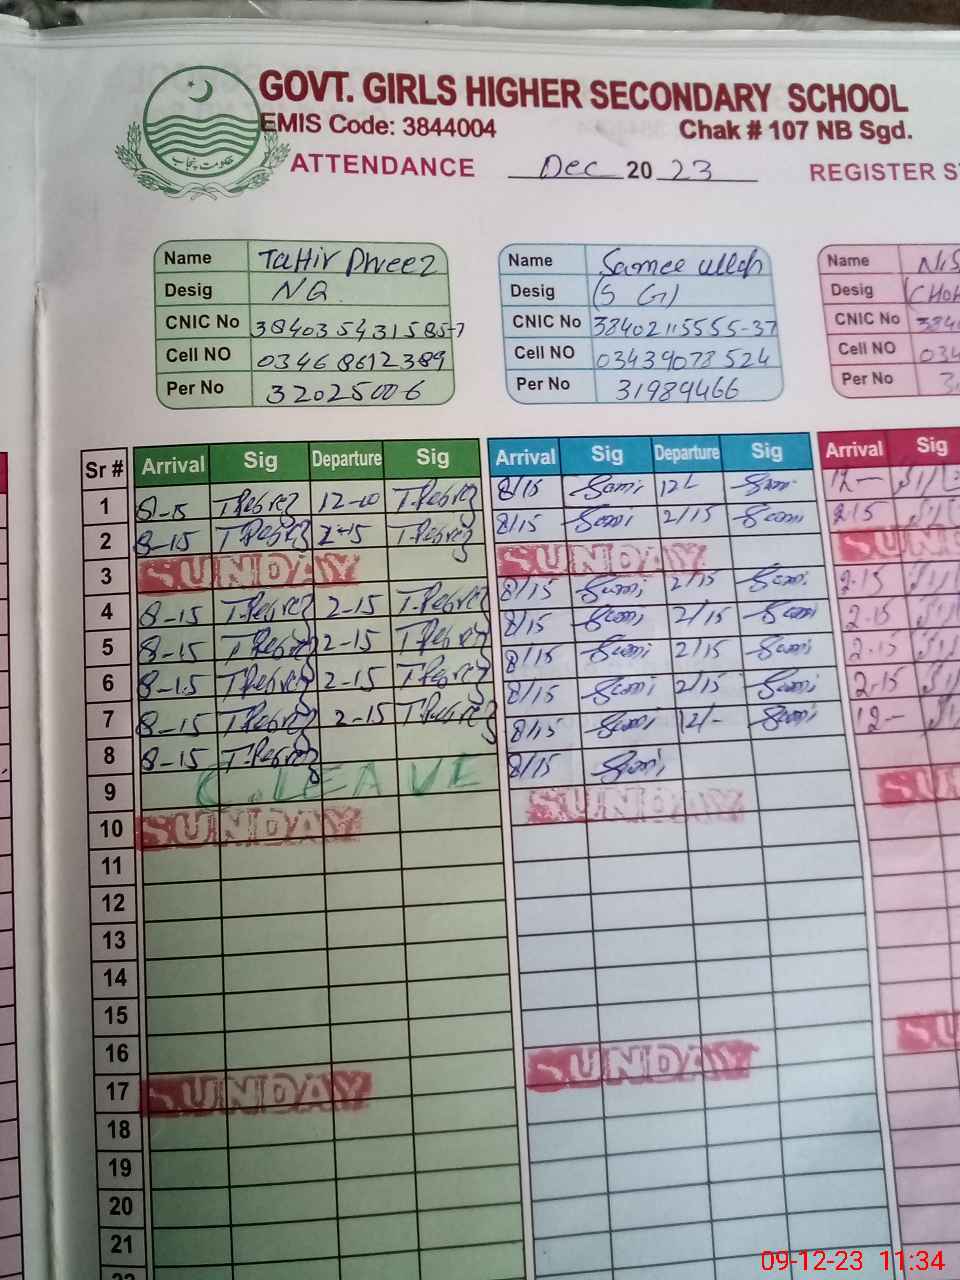 GOVT. GIRLS HIGHER SECONDARY SCHOOL
EMIS Code: 3844004 Chak # 107 NB Sgd.
ATTENDANCE Dec 2023 REGISTER
حکومت پنجاب
Name Tahir Name Samee ullah Name
Desig NQ Desig (S G) Desig
CNIC No CNIC No 38402115555-37 CNIC No
Cell NO 03468612389 Cell NO 03439078524 Cell NO
Per No 32025006 Per No 31989466 Per No
Sr # Arrival Sig Departure Sig Arrival Sig Departure Sig Arrival Sig
1 8-15 T.Pervez 12-00 T.Pervez 8/15 Sami Sami 12-
2 8-15 T.Pervez 2-15 T.Pervez 8/15 Sami 2/15 Sami 2.15
3 SUNDAY SUNDAY SUND
4 8-15 T.Pervez 2-15 T.Pervez 8/15 Sami 2/15 Sami 2.15
5 8-15 T.Pervez 2-15 T.Pervez 8/15 Sami 2/15 Sami 2.15
6 8-15 T.Pervez 2-15 T.Pervez 8/15 Sami 2/15 Sami 2.15
7 8-15 T.Pervez 2-15 T.Pervez 8/15 Sami 2/15 Sami 2.15
8 8-15 T.Pervez 8/15 Sami 12/- Sami 12-
9 C.LEAVE 8/15 Sami
10 SUNDAY SUNDAY SU
11
12
13
14
15
16
17 SUNDAY SUNDAY SU
18
19
20
21
09-12-23 11:34